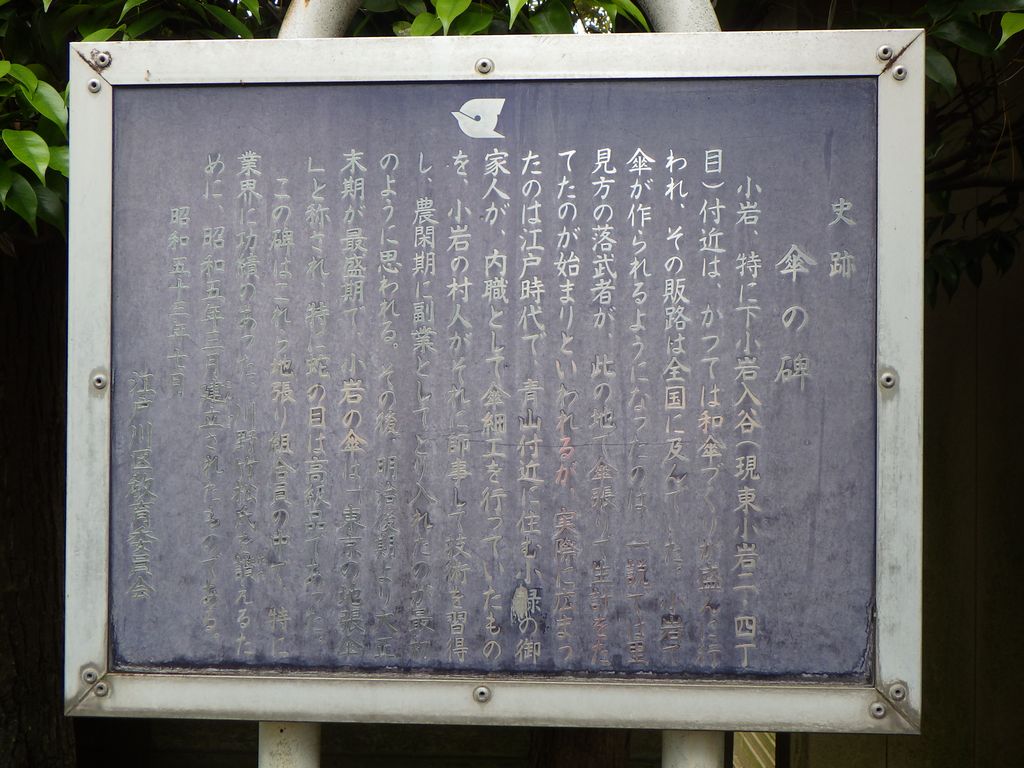 史跡
傘の碑
小岩、特に下小岩入谷（現東小岩二・四丁
目）付近は、かつては和傘づくりが盛んに行
われ、その販路は全国に及んでいた。小岩で
傘が作られるようになったのは、一説では里
見方の落武者が、此の地で傘張りで生計をた
てたのが始まりといわれるが、実際に広まっ
たのは江戸時代で、青山付近に住む小禄の御
家人が、内職として傘細工を行っていたもの
を、小岩の村人がそれに師事して技術を習得
し、農閑期に副業としてとり入れたのが最初
のように思われる。その後、明治後期より大正
末期が最盛期で、小岩の傘は「東京の地張傘
」と称され、特に蛇の目は高級品であった。
この碑はこれら地張り組合員の中で、特に
業界に功績のあった 氏を讃えるた
めに、昭和五年三月建立されたものである。
昭和五十三年十月
江戸川区教育委員会